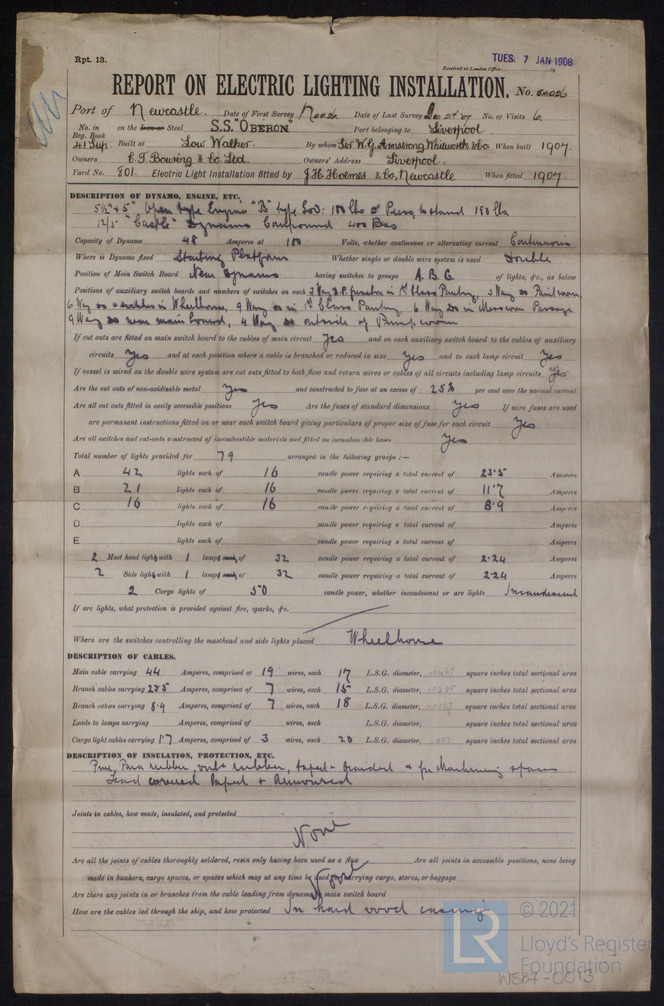 Rpt. 13.
TUES. 7 JAN 1908
Received at London Office
REPORT ON ELECTRIC LIGHTING INSTALLATION. No. 54026
Port of Newcastle. Date of First Survey Date of Last Survey Dec 21st '07 No. of Visits 6.
No. in Reg. Book 41 Sup. on the Iron or Steel S.S. "OBERON" Port belonging to Liverpool
Built at Low Walker. By whom Sir W. G. Armstrong Whitworth & Co When built 1907.
Owners C. T. Bowring & Co. Ltd. Owners' Address Liverpool.
Yard No. 801. Electric Light Installation fitted by J. H. Holmes & Co, Newcastle When fitted 1907.
DESCRIPTION OF DYNAMO, ENGINE, ETC.
Open type Engine "B" type 180 lbs
"Castle" Dynamo Compound 400 Revs
Capacity of Dynamo 48 Amperes at 100 Volts, whether continuous or alternating current Continuous
Where is Dynamo fixed Starting Platform Whether single or double wire system is used Double
Position of Main Switch Board Near Dynamo having switches to groups A. B. C. of lights, &c., as below
Positions of auxiliary switch boards and numbers of switches on each 3 Way in 1st Class Pantry, 3 Way Do Paint room,
6 Way in Wheelhouse, 9 Way Do in 1st Class Pantry 6 Way Do in Messroom Passage
9 Way Do near main board, 4 Way Do outside of Pump room
If cut outs are fitted on main switch board to the cables of main circuit Yes and on each auxiliary switch board to the cables of auxiliary
circuits Yes and at each position where a cable is branched or reduced in size Yes and to each lamp circuit Yes
If vessel is wired on the double wire system are cut outs fitted to both flow and return wires or cables of all circuits including lamp circuits Yes
Are the cut outs of non-oxidizable metal Yes and constructed to fuse at an excess of 25% per cent over the normal current
Are all cut outs fitted in easily accessible positions Yes Are the fuses of standard dimensions Yes If wire fuses are used
are permanent instructions fitted on or near each switch board giving particulars of proper size of fuse for each circuit Yes
Are all switches and cut-outs constructed of incombustible materials and fitted on incombustible bases Yes
Total number of lights provided for 79 arranged in the following groups :—
A 42 lights each of 16 candle power requiring a total current of 23.5 Amperes
B 21 lights each of 16 candle power requiring a total current of 11.7 Amperes
C 16 lights each of 16 candle power requiring a total current of 8.9 Amperes
D lights each of candle power requiring a total current of Amperes
E lights each of candle power requiring a total current of Amperes
2 Mast head light with 1 lamp each of 32 candle power requiring a total current of 2.24 Amperes
2 Side light with 1 lamp each of 32 candle power requiring a total current of 2.24 Amperes
2 Cargo lights of 50 candle power, whether incandescent or arc lights Incandescent
If arc lights, what protection is provided against fire, sparks, &c.
Where are the switches controlling the masthead and side lights placed Wheelhouse
DESCRIPTION OF CABLES.
Main cable carrying 44 Amperes, comprised of 19 wires, each 17 L.S.G. diameter, square inches total sectional area
Branch cables carrying 23.5 Amperes, comprised of 7 wires, each 15 L.S.G. diameter, square inches total sectional area
Branch cables carrying 8.9 Amperes, comprised of 7 wires, each 18 L.S.G. diameter, square inches total sectional area
Leads to lamps carrying Amperes, comprised of wires, each L.S.G. diameter, square inches total sectional area
Cargo light cables carrying 1.7 Amperes, comprised of 3 wires, each 20 L.S.G. diameter, square inches total sectional area
DESCRIPTION OF INSULATION, PROTECTION, ETC.
Pure Para rubber, vulc rubber, taped & braided & for Machinery spaces
Lead covered taped & Armoured
Joints in cables, how made, insulated, and protected
None
Are all the joints of cables thoroughly soldered, resin only having been used as a flux Are all joints in accessible positions, none being
made in bunkers, cargo spaces, or spaces which may at any time be used for carrying cargo, stores, or baggage None
Are there any joints in or branches from the cable leading from dynamo to main switch board
How are the cables led through the ship, and how protected In hard wood casing
© 2021
Lloyd's Register
Foundation
W587-0013